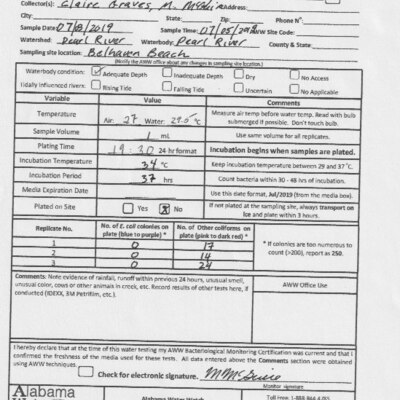 Collector(s): Claire Graves, M. McGuire Address:
City: State: Zip: Phone N°:
Sample Date 07/8/2019 Sample Time: AWW Site Code:
Watershed: Pearl River Waterbody: Pearl River County & State:
Sampling site location: Belhaven Beach
(Notify the AWW office about any changes in sampling site location.)
Waterbody condition: Adequate Depth Inadequate Depth Dry No Access
Tidally Influenced rivers: Rising Tide Falling Tide Uncertain No Applicable
Variable Value Comments
Temperature Air: 27 Water: 29.5 °C Measure air temp before water temp. Read with bulb submerged if possible. Don't touch bulb.
Sample Volume 1 mL Use same volume for all replicates.
Plating Time 19:30 24 hr format Incubation begins when samples are plated.
Incubation Temperature 34 °C Keep incubation temperature between 29 and 37 °C.
Incubation Period 37 hrs Count bacteria within 30 - 48 hrs of incubation.
Media Expiration Date Use this date format, Jul/2019 (from the media box).
Plated on Site Yes No If not plated at the sampling site, always transport on ice and plate within 3 hours.
Replicate No. No. of E. coli colonies on plate (blue to purple) * No. of Other coliforms on plate (pink to dark red) *
1 0 17
2 0 14
3 0 24
* If colonies are too numerous to count (>200), report as 250.
Comments: Note evidence of rainfall, runoff within previous 24 hours, unusual smell,
unusual color, cows or other animals in creek, etc. Record results of other tests here, if
conducted (IDEXX, 3M Petrifilm, etc.).
AWW Office Use
I hereby declare that at the time of this water testing my AWW Bacteriological Monitoring Certification was current and that I
confirmed the freshness of the media used for these tests. All data entered above the Comments section were obtained
using AWW techniques
Check for electronic signature. MMcGuire
Monitor signature
Alabama Alabama Water Watch Toll Free: 1-888-844-4785